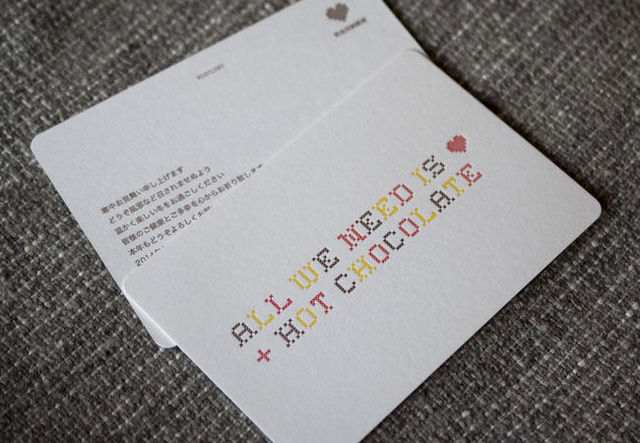 POSTCARD
寒中お見舞い申し上げます
どうぞ風邪など召されませぬよう
温かく楽しい冬をお過ごしください
皆様のご健康とご多幸を心からお祈り致しま
本年もどうぞよろしくお
ALL WE NEED IS ♥
+ HOT CHOCOLATE